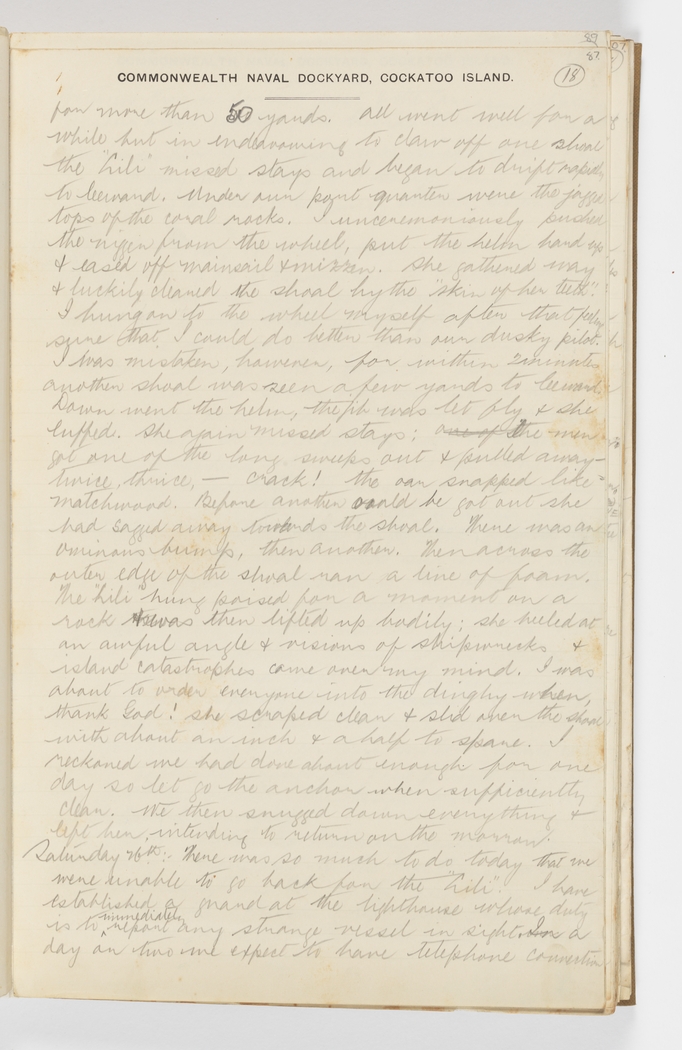 89
87
18
COMMONWEALTH NAVAL DOCKYARD, COCKATOO ISLAND.
for more than 50 yards. All went well for a
while but in endeavouring to claw off one shoal
the "Lili" missed stays and began to drift rapidly
to leeward. Under our port quarter were the jagged
tops of the coral rocks. I unceremoniously pushed
the niger from the wheel, put the helm hard up
& eased off mainsail & mizzen. She gathered way
& luckily cleared the shoal by the "skin of her teeth".
I hung on to the wheel myself after that feeling
sure that I could do better than our dusky pilot.
I was mistaken, however, for within 2 minutes
another shoal was seen a few yards to leeward.
Down went the helm, the jib was let fly & she
luffed. She again missed stays; one of the men
got one of the long sweeps out & pulled away –
twice, thrice, — crack! the oar snapped like
matchwood. Before another could be got out she
had sagged away towards the shoal. There was an
ominous bump, then another. Then across the
outer edge of the shoal ran a line of foam.
The "Lili" hung poised for a moment on a
rock & was then lifted up bodily; she heeled at
an awful angle & visions of shipwrecks &
island catastrophes came over my mind. I was
about to order everyone into the dinghy when,
thank God! she scraped clear & slid over the shoal
with about an inch & a half to spare. I
reckoned we had done about enough for one
day so let go the anchor when sufficiently
clear. We then snugged down everything &
left her, intending to return on the morrow.
Saturday 26th:- There was so much to do today that we
were unable to go back for the "Lili". I have
established a guard at the lighthouse whose duty
is to immediately report any strange vessel in sight. In a
day or two we expect to have telephone connection